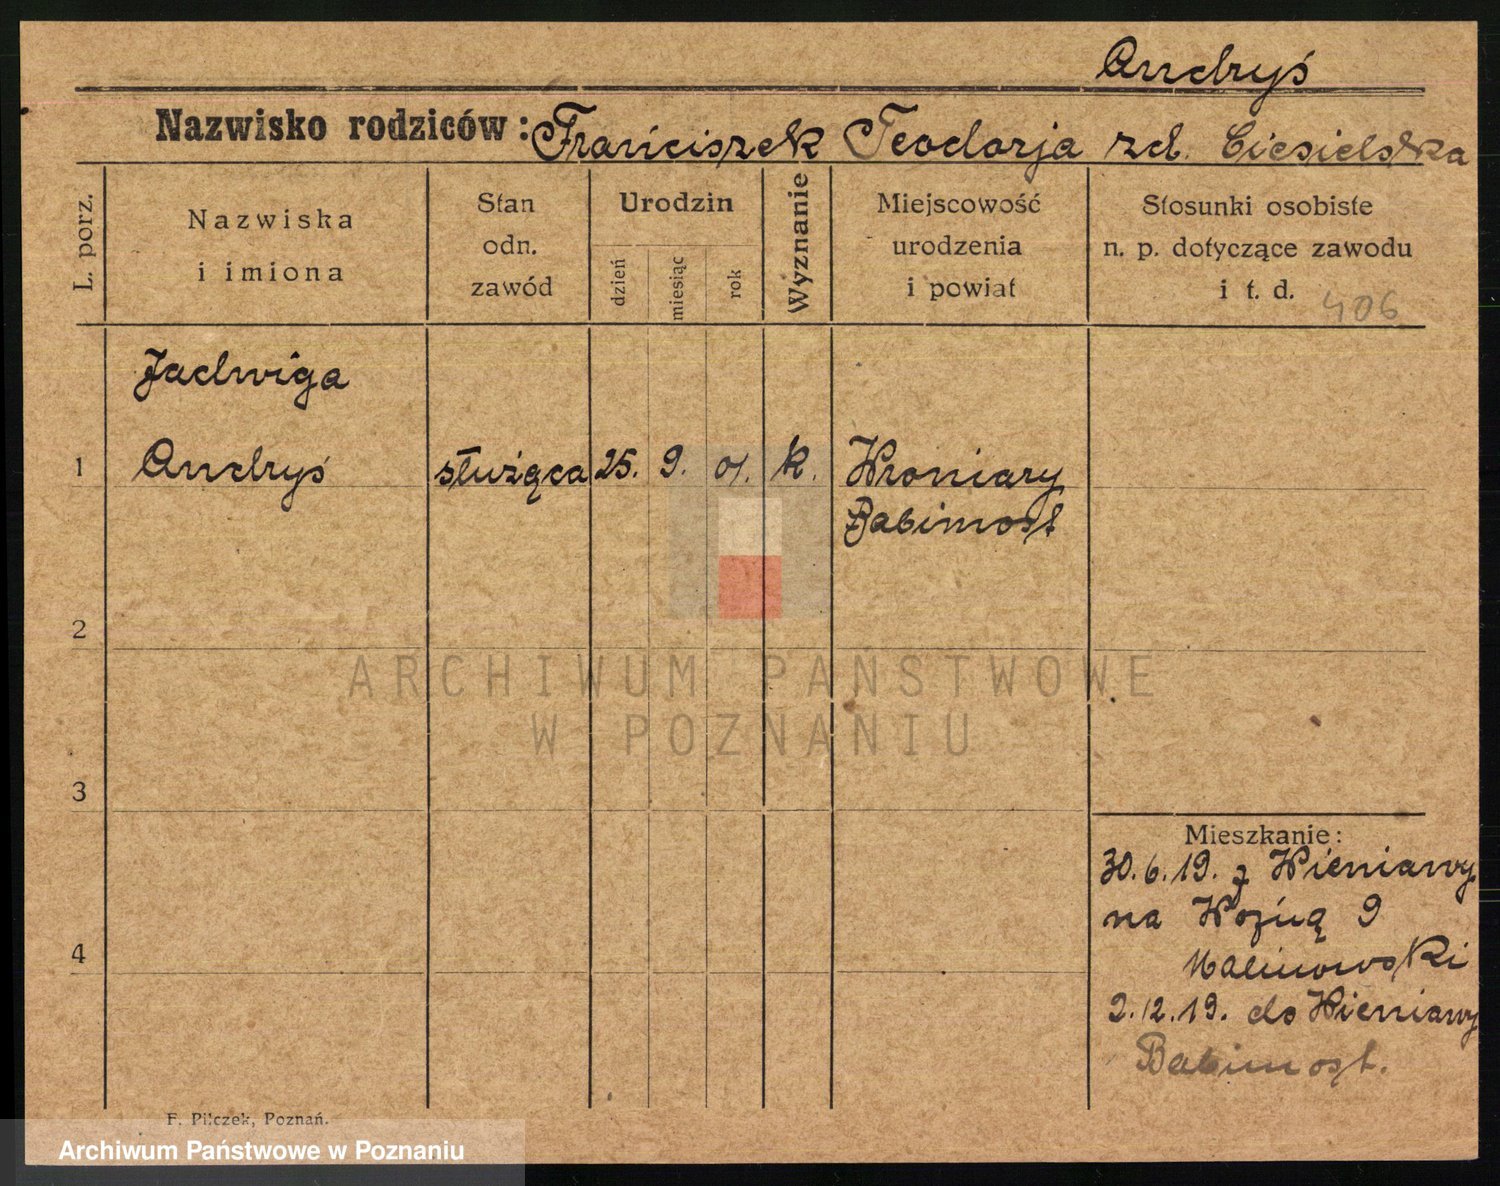 Andryś
Nazwisko rodziców: Franciszek Teodorja zd. Ciesielska
L. porz.
Nazwiska
i imiona
Stan
odn.
zawód
Urodzin
dzień
miesiąc
rok
Wyznanie
Miejscowość
urodzenia
i powiat
Stosunki osobiste
n. p. dotyczące zawodu
i t. d.
406
Jadwiga
1 Andryś służąca 25. 9. 01. k. Wroniary
Babimost
2
3
4
Mieszkanie:
30.6.19. z Wieniawy
na Woźną 9
Malinowski
2.12.19. do Wieniawy
Babimost.
F. Pilczek, Poznań.
ARCHIWUM PAŃSTWOWE
W POZNANIU
Archiwum Państwowe w Poznaniu